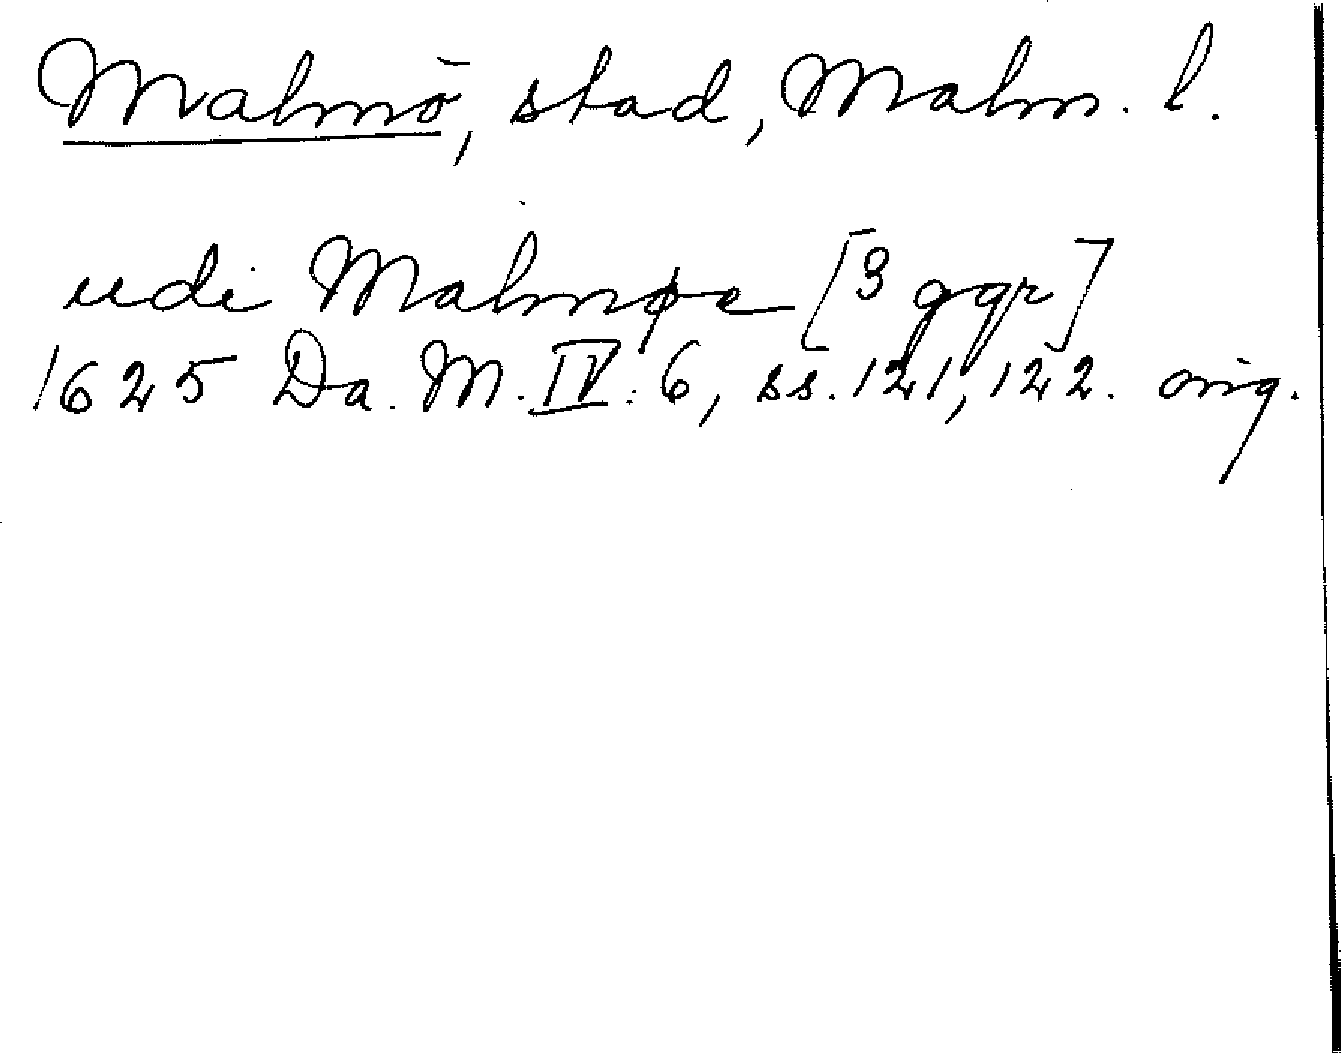 Malmö, stad, Malm. l.
udi Malmøe [3 ggr]
1625 Da. M. IV: 6, ss. 121, 122. orig.